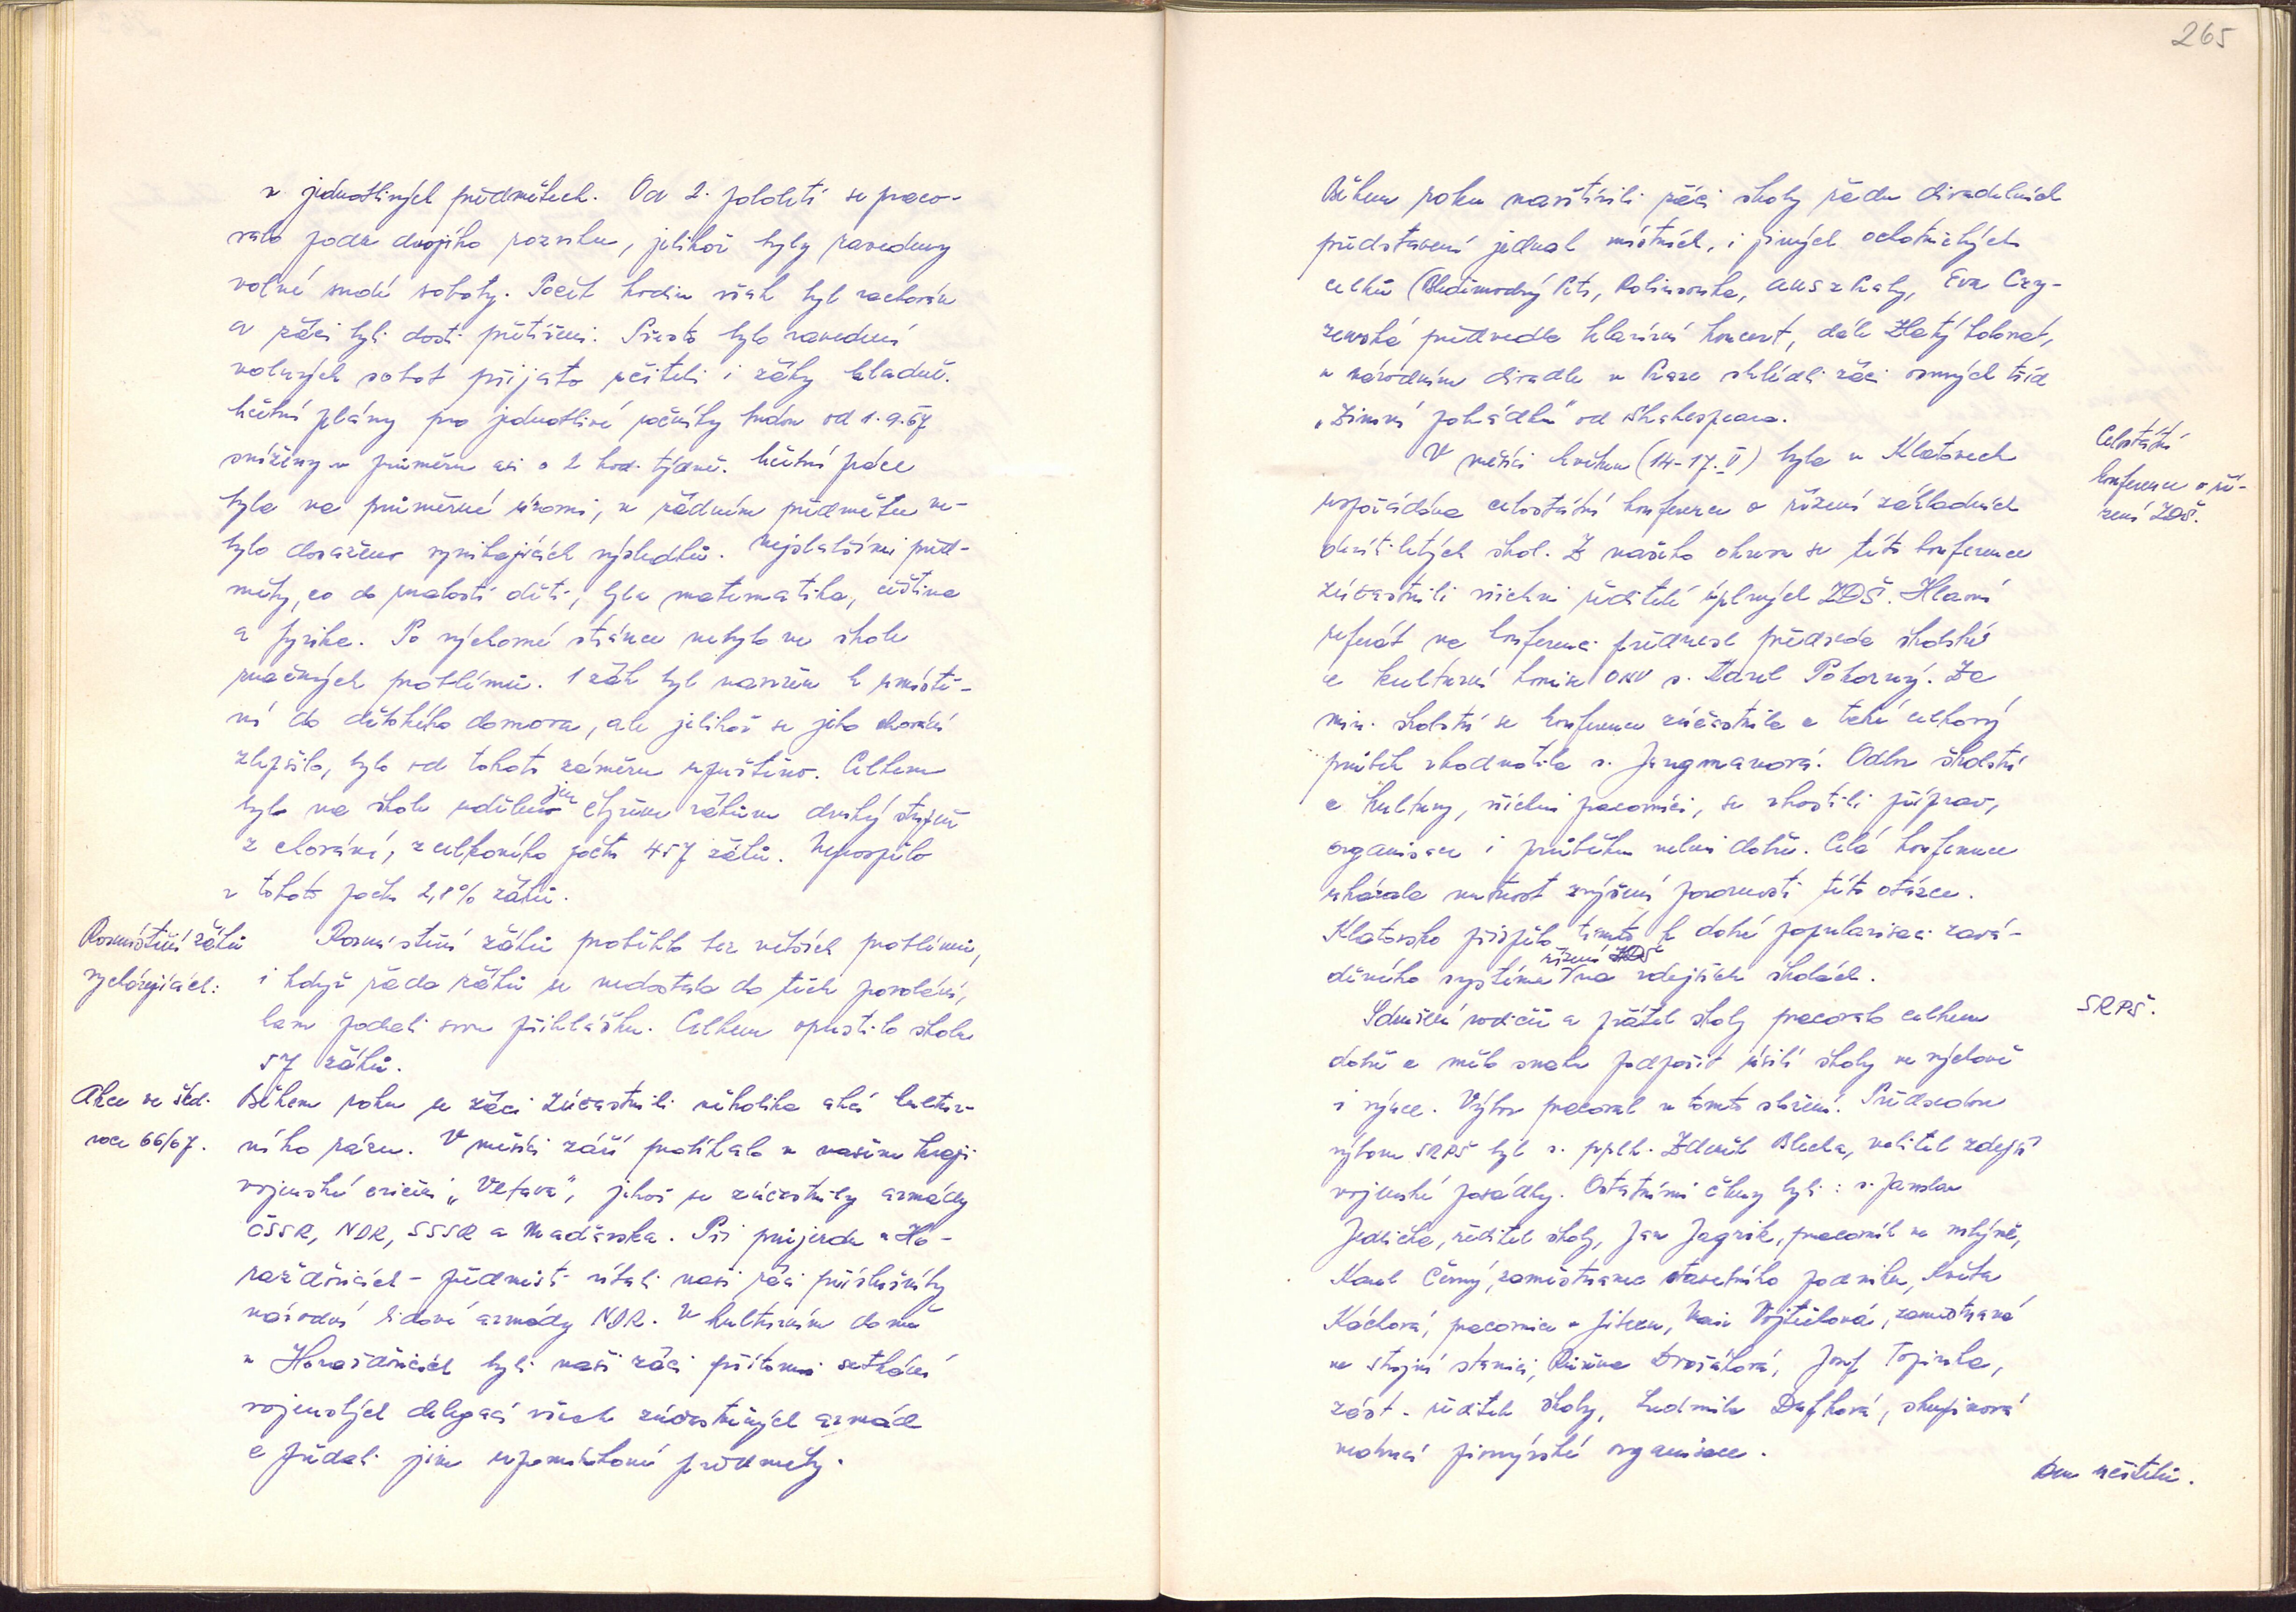 v jednotlivých předmětech. Od 2. pololetí se praco-
valo podle dvojího rozvrhu, jelikož byly zavedeny
volné sudé soboty. Počet hodin však byl zachován
a žáci byli dosti přetíženi. Přesto bylo zavedení
volných sobot přijato učiteli i žáky kladně.
Učební plány pro jednotlivé ročníky budou od 1.9.67
sníženy v průměru asi o 2 hod. týdně. Učební práce
byla na průměrné úrovni, v žádném předmětu ne-
bylo dosaženo vynikajících výsledků. Nejslabšími před-
měty, co do znalostí dětí, byla matematika, čeština
a fyzika. Po výchovné stránce nebylo na škole
značných problémů. 1 žák byl navržen k umístě-
ní do dětského domova, ale jelikož se jeho chování
zlepšilo, bylo od tohoto záměru upuštěno. Celkem
bylo na škole uděleno jen čtyřem žákům druhý stupeň
z chování, z celkového počtu 457 žáků. Neprospělo
z tohoto počtu 2,8% žáků.
Rozmístění žáků
vycházejících:
Rozmístění žáků proběhlo bez větších problémů,
i když řada žáků se nedostala do těch povolání,
kam podali svou přihlášku. Celkem opustilo školu
57 žáků.
Akce ve škol.
roce 66/67.
Během roku se žáci zúčastnili několika akcí kultur-
ního rázu. V měsíci září probíhalo v našem kraji
vojenské cvičení "Vltava", jehož se zúčastnily armády
ČSSR, NDR, SSSR a Maďarska. Při průjezdu v Ho-
ražďovicích - předměstí vítali naši žáci příslušníky
národní lidové armády NDR. V kulturním domě
v Horažďovicích byli naši žáci přítomni setkání
vojenských delegací všech zúčastněných armád
a předali jim upomínkové předměty.
265
Během roku navštívili žáci školy řadu divadelních
představení jednak místních, i jiných ochotnických
celků (Bleděmodrý Petr, Eva Czy-
zewská předvedla klavírní koncert, dále Zlatý kolovrat,
v národním divadle v Praze shlédli žáci osmých tříd
"Zimní pohádku" od Shakespeara.
V měsíci květnu (14-17.V) byla v Klatovech
uspořádána celostátní konference o řízení základních
devítiletých škol. Z našeho okresu se této konference
zúčastnili všichni ředitelé úplných ZDŠ. Hlavní
referát na konferenci přednesl předseda školské
a kulturní komise ONV s. Karel Pokorný. Za
min. školství se konference zúčastnila a také celkový
průběh zhodnotila s. Jungmanová. Odbor školství
a kultury, všichni pracovníci, se zhostili příprav,
organisace i průběhu velmi dobře. Celá konference
ukázala nutnost zvýšení pozornosti této otázce.
Klatovsko přispělo tímto k dobré popularisaci zavá-
děného systému řízení ZDŠ na zdejších školách.
Celostátní
konference o ří-
zení ZDŠ.
Sdružení rodičů a přátel školy pracovalo celkem
dobře a mělo snahu podpořit úsilí školy ve výchově
i výuce. Výbor pracoval v tomto složení. Předsedou
výboru SRPŠ byl s. pplk. Zdeněk Blecha, velitel zdejší
vojenské posádky. Ostatními členy byli: s. Jaroslav
Jedlička, ředitel školy, Jan Jagrik, pracovník ve mlýně,
Karel Černý, zaměstnanec stavebního podniku, Květa
Káclová, pracovnice v Jitexu, Marie Vojtěchová, zaměstnaná
ve strojní stanici, Růžena Dvořáková, Josef Topinka,
zást. ředitele školy, Ludmila Dufková, skupinová
vedoucí pionýrské organisace.
SRPŠ.
Den učitelů.